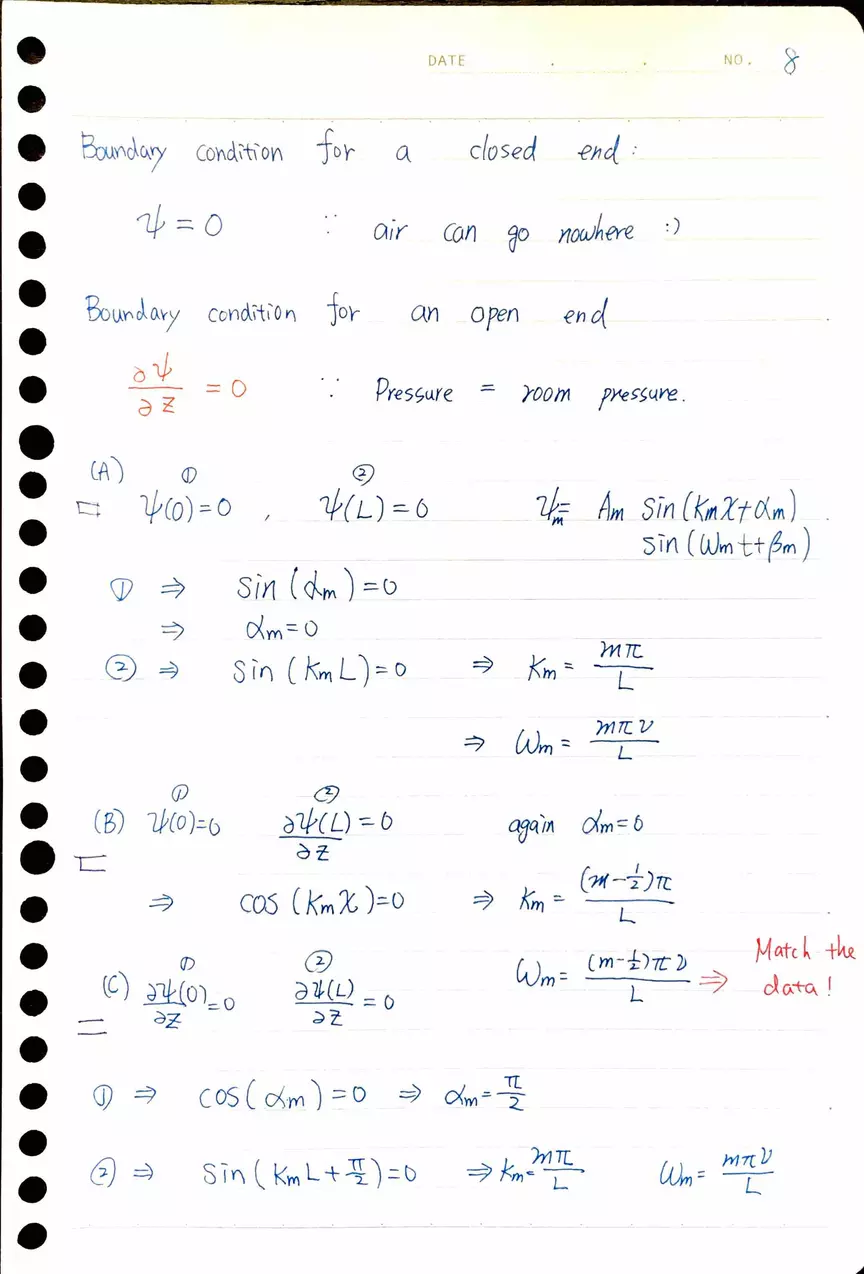 DATE . . NO. 8
Boundary condition for a closed end :
ψ = 0 ∵ air can go nowhere :)
Boundary condition for an open end
∂ψ/∂z = 0 ∵ Pressure = room pressure.
(A) ① ②
ψ(0)=0 , ψ(L)=0 ψm= Am Sin(Kmx+αm)
sin(ωmt+βm)
① ⇒ Sin(αm)=0
⇒ αm=0
② ⇒ Sin(KmL)=0 ⇒ Km = mπ/L
⇒ ωm = mπv/L
① ②
(B) ψ(0)=0 ∂ψ(L)/∂z = 0 again αm=0
⇒ cos(Kmx)=0 ⇒ Km = (m-1/2)π/L
① ②
(C) ∂ψ(0)/∂z=0 ∂ψ(L)/∂z = 0 ωm= (m-1/2)πv/L ⇒ Match the
data!
① ⇒ cos(αm)=0 ⇒ αm=π/2
② ⇒ Sin(KmL+π/2)=0 ⇒ Km=mπ/L ωm= mπv/L